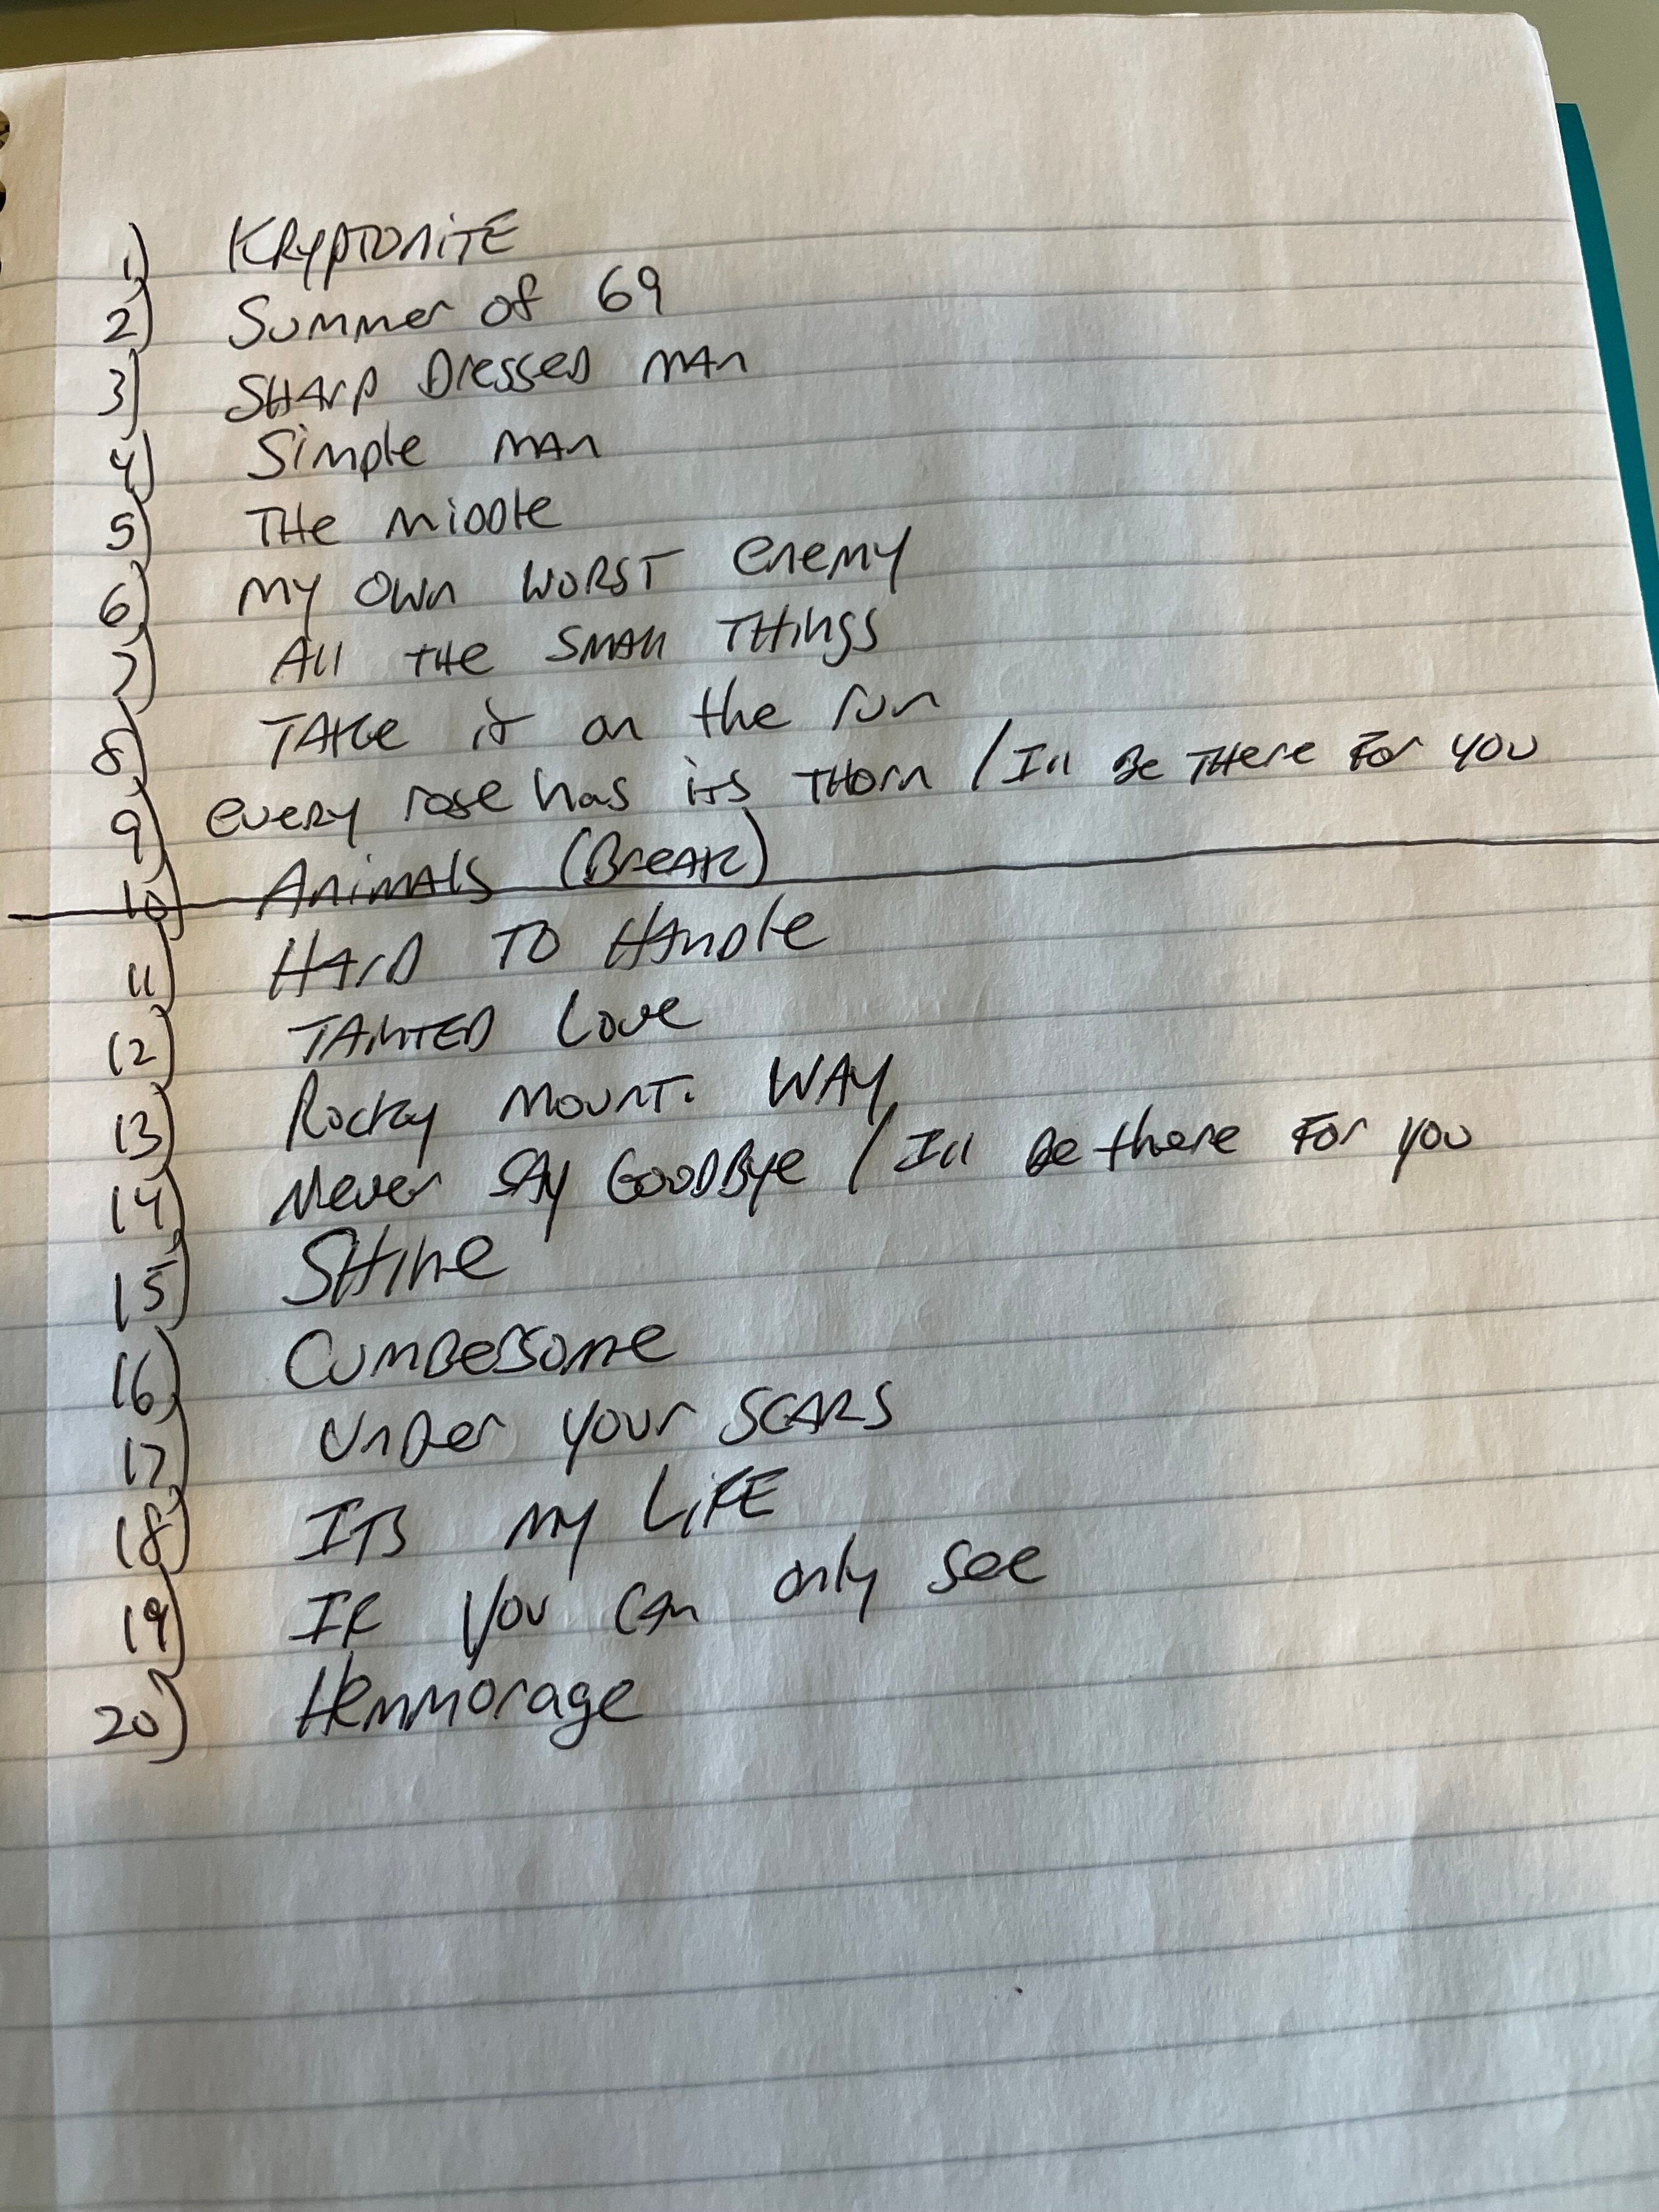 1) KRYPTONITE
2) Summer of 69
3) SHARP DRESSED MAN
4) Simple MAN
5) THE MIDDLE
6) MY OWN WORST ENEMY
7) All THE SMALL THINGS
8) TAKE it on the run
9) EVERY rose has its THORN / I'll Be THERE FOR YOU
10) ANIMALS (BREAK)
11) HARD TO HANDLE
12) TAINTED Love
13) Rocky MOUNT. WAY
14) Never SAY GOODBYE / I'll Be there FOR YOU
15) SHINE
16) CUMBERSOME
17) UNDER YOUR SCARS
18) ITS MY LiFE
19) IF YOU CAN only see
20) Hemmorage